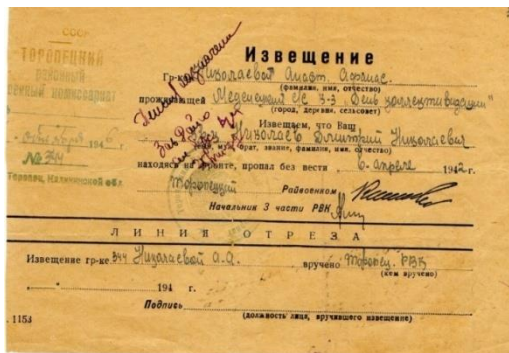 СССР
ТОРОПЕЦКИЙ
районный
военный комиссариат
194
№ 344
Торопец, Калининской обл
Извещение
Гр-ке Николаевой Анаст. Афанас.
(фамилия, имя, отчество)
проживающей с/с к-з „День коллективизации"
(город, деревня, сельсовет)
Извещаем, что Ваш
Николаев Дмитрий Николаевич
(сын, муж, брат, звание, фамилия, имя, отчество)
находясь на фронте, пропал без вести в апреле 194 г.
Торопецкий Райвоенком
Начальник 3 части РВК
ЛИНИЯ ОТРЕЗА
Извещение гр-ке 344 Николаевой А.А. вручено Торопец. РВК
(кем вручено)
„ " 194 г.
Подпись
(должность лица, вручившего извещение)
1153